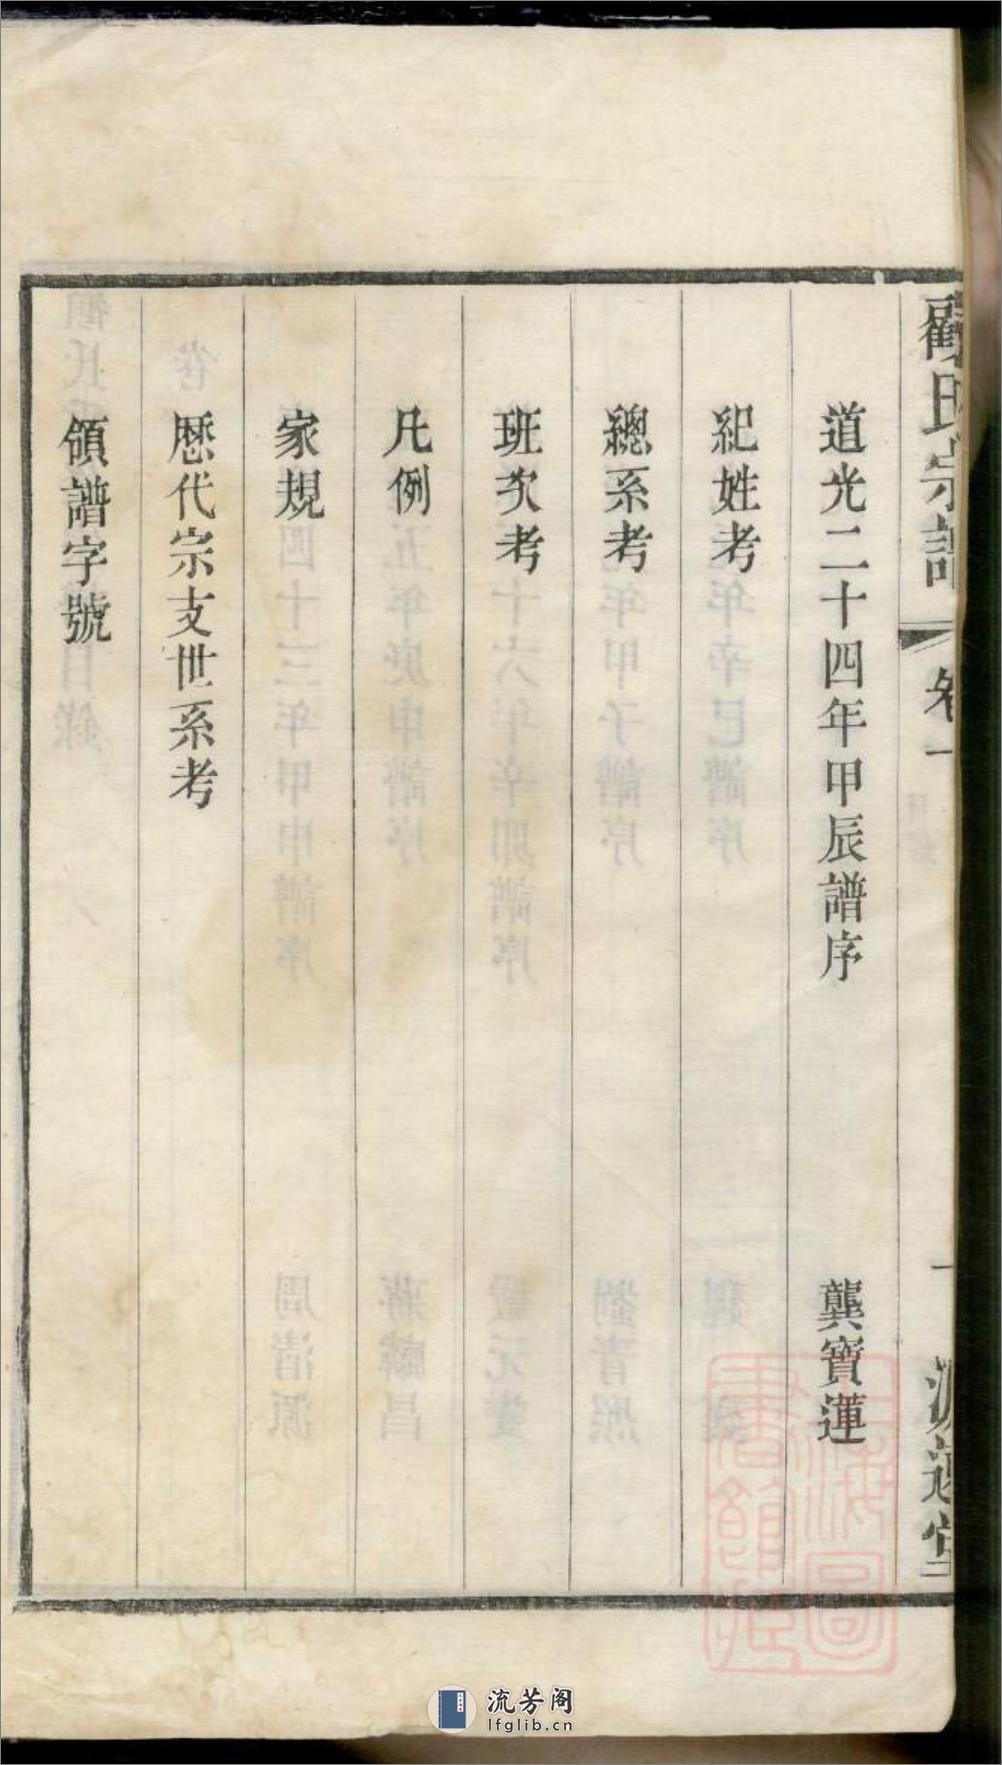 顧氏宗譜 卷一
道光二十四年甲辰譜序 龔寶蓮
紀姓考
總系考
班次考
凡例
家規
歷代宗支世系考
領譜字號
上海圖書館藏
流芳阁
lfglib.cn